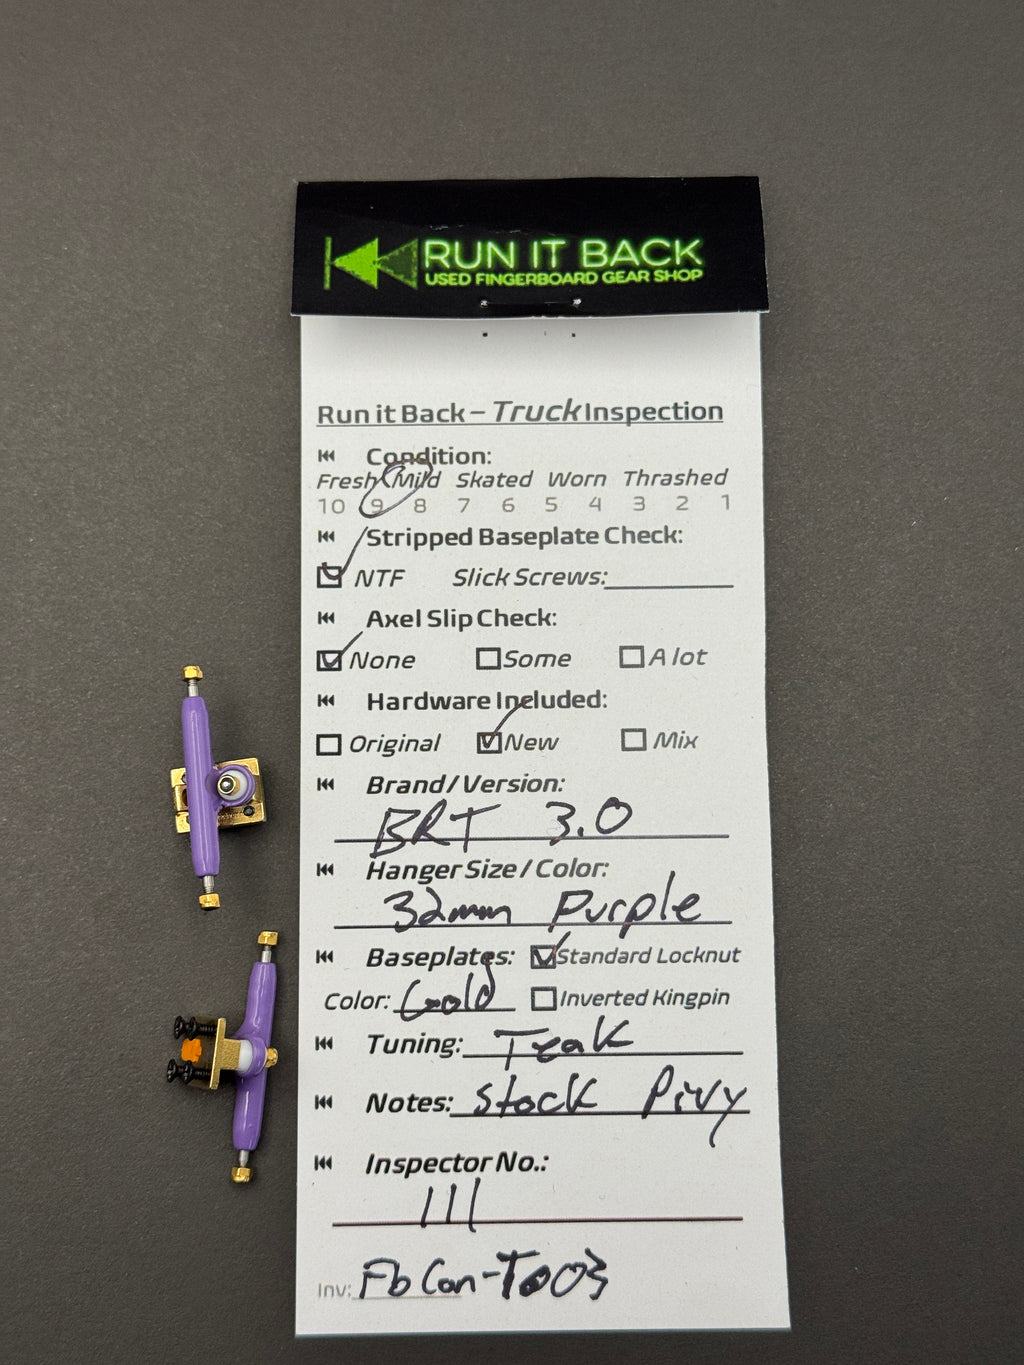 RUN IT BACK
USED FINGERBOARD GEAR SHOP
Run it Back – Truck Inspection
Condition:
Fresh Mild Skated Worn Thrashed
10 9 8 7 6 5 4 3 2 1
Stripped Baseplate Check:
NTF Slick Screws:
Axel Slip Check:
None Some A lot
Hardware Included:
Original New Mix
Brand/Version:
BRT 3.0
Hanger Size/Color:
32mm Purple
Baseplates: Standard Locknut
Color: Gold Inverted Kingpin
Tuning: Teak
Notes: Stock Pivy
Inspector No.:
111
Inv: Fb Con-T003